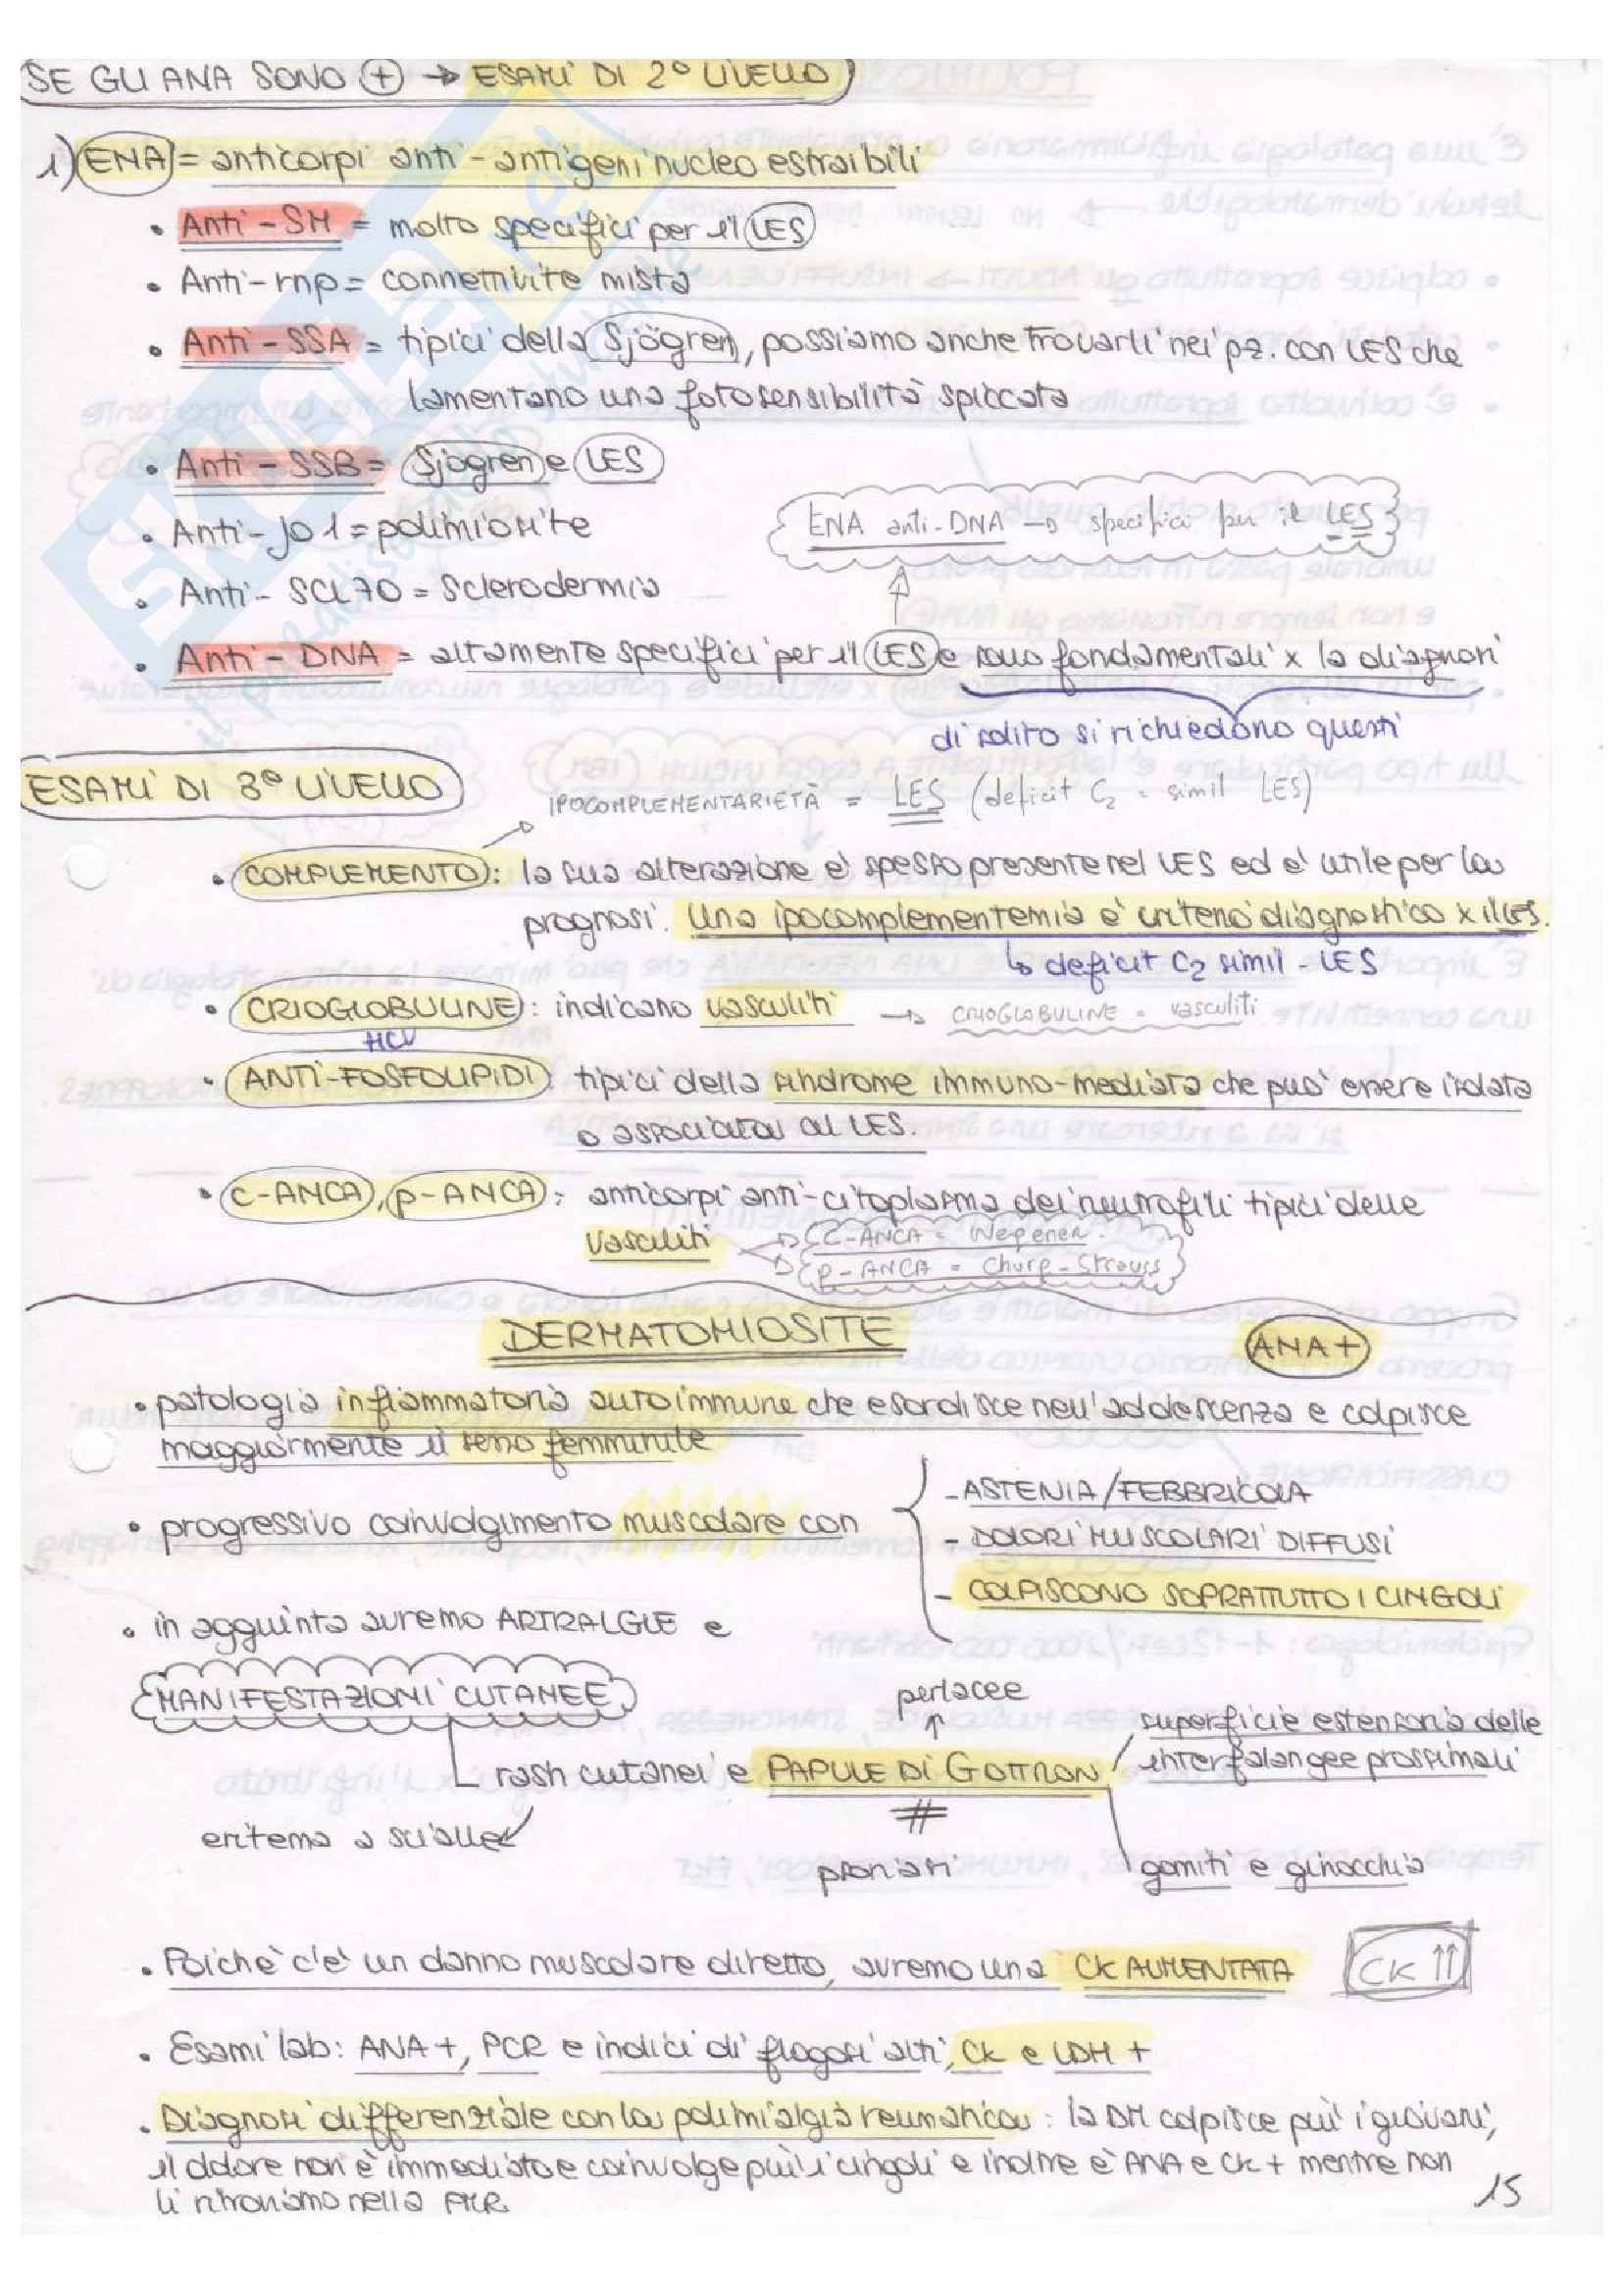 SE GLI ANA SONO (+) → ESAMI DI 2° LIVELLO
1) ENA = anticorpi anti-antigeni nucleo estraibili
• Anti-SM = molto specifici per il LES
• Anti-rnp = connettivite mista
• Anti-SSA = tipici della Sjögren, possiamo anche trovarli nei pz. con LES che
lamentano una fotosensibilità spiccata
• Anti-SSB = Sjogren e LES
• Anti-Jo1 = polimiosite
ENA anti-DNA → specifici per il LES
• Anti-SCL70 = Sclerodermia
• Anti-DNA = altamente specifici per il LES e sono fondamentali x la diagnosi
di solito si richiedono questi
ESAMI DI 3° LIVELLO
IPOCOMPLEMENTARIETÀ = LES (deficit C2 = simil LES)
• COMPLEMENTO: la sua alterazione è spesso presente nel LES ed è utile per la
prognosi. Una ipocomplementemia è criterio diagnostico x il LES.
↳ deficit C2 simil-LES
• CRIOGLOBULINE: indicano vasculiti → CRIOGLOBULINE = vasculiti
HCV
• ANTI-FOSFOLIPIDI: tipici della sindrome immuno-mediata che può essere isolata
o associata al LES.
• C-ANCA, p-ANCA: anticorpi anti-citoplasma dei neutrofili tipici delle
vasculiti → C-ANCA = Wegener
→ p-ANCA = Churg-Strauss
DERMATOMIOSITE
ANA+
• patologia infiammatoria autoimmune che esordisce nell'adolescenza e colpisce
maggiormente il sesso femminile
• progressivo coinvolgimento muscolare con
- ASTENIA/FEBBRICOLA
- DOLORI MUSCOLARI DIFFUSI
- COLPISCONO SOPRATTUTTO I CINGOLI
• in aggiunta avremo ARTRALGIE e
MANIFESTAZIONI CUTANEE
perlacee
rash cutanei e PAPULE DI GOTTRON
superficie estensoria delle
interfalangee prossimali
eritema a scialle
≠
psoriasi
gomiti e ginocchia
• Poichè c'è un danno muscolare diretto, avremo una CK AUMENTATA
CK ↑↑
• Esami lab: ANA+, PCR e indici di flogosi alti, CK e LDH +
• Diagnosi differenziale con la polimialgia reumatica: la DM colpisce più i giovani,
il dolore non è immediato e coinvolge più i cingoli e inoltre è ANA e CK + mentre non
li ritroviamo nella PMR
15
SKUOLA.net
il paradiso dello studente